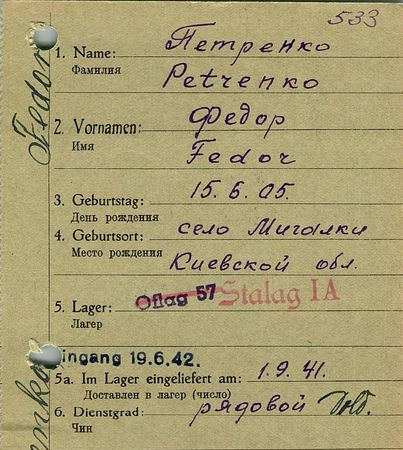 533
1. Name: Петренко
Фамилия
Petrenko
2. Vornamen: Федор
Имя
Fedor
3. Geburtstag: 15.6.05.
День рождения
4. Geburtsort: село Мигалки
Место рождения
Киевской обл.
5. Lager: Oflag 57 Stalag IA
Лагерь
Eingang 19.6.42.
5a. Im Lager eingeliefert am: 1.9.41.
Доставлен в лагерь (число)
6. Dienstgrad: рядовой Sold.
Чин
Fedor
enko